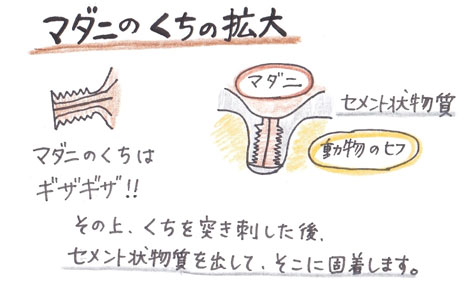 マダニのくちの拡大
マダニ
セメント状物質
動物のヒフ
マダニのくちは
ギザギザ!!
その上、くちを突き刺した後、
セメント状物質を出して、そこに固着します。